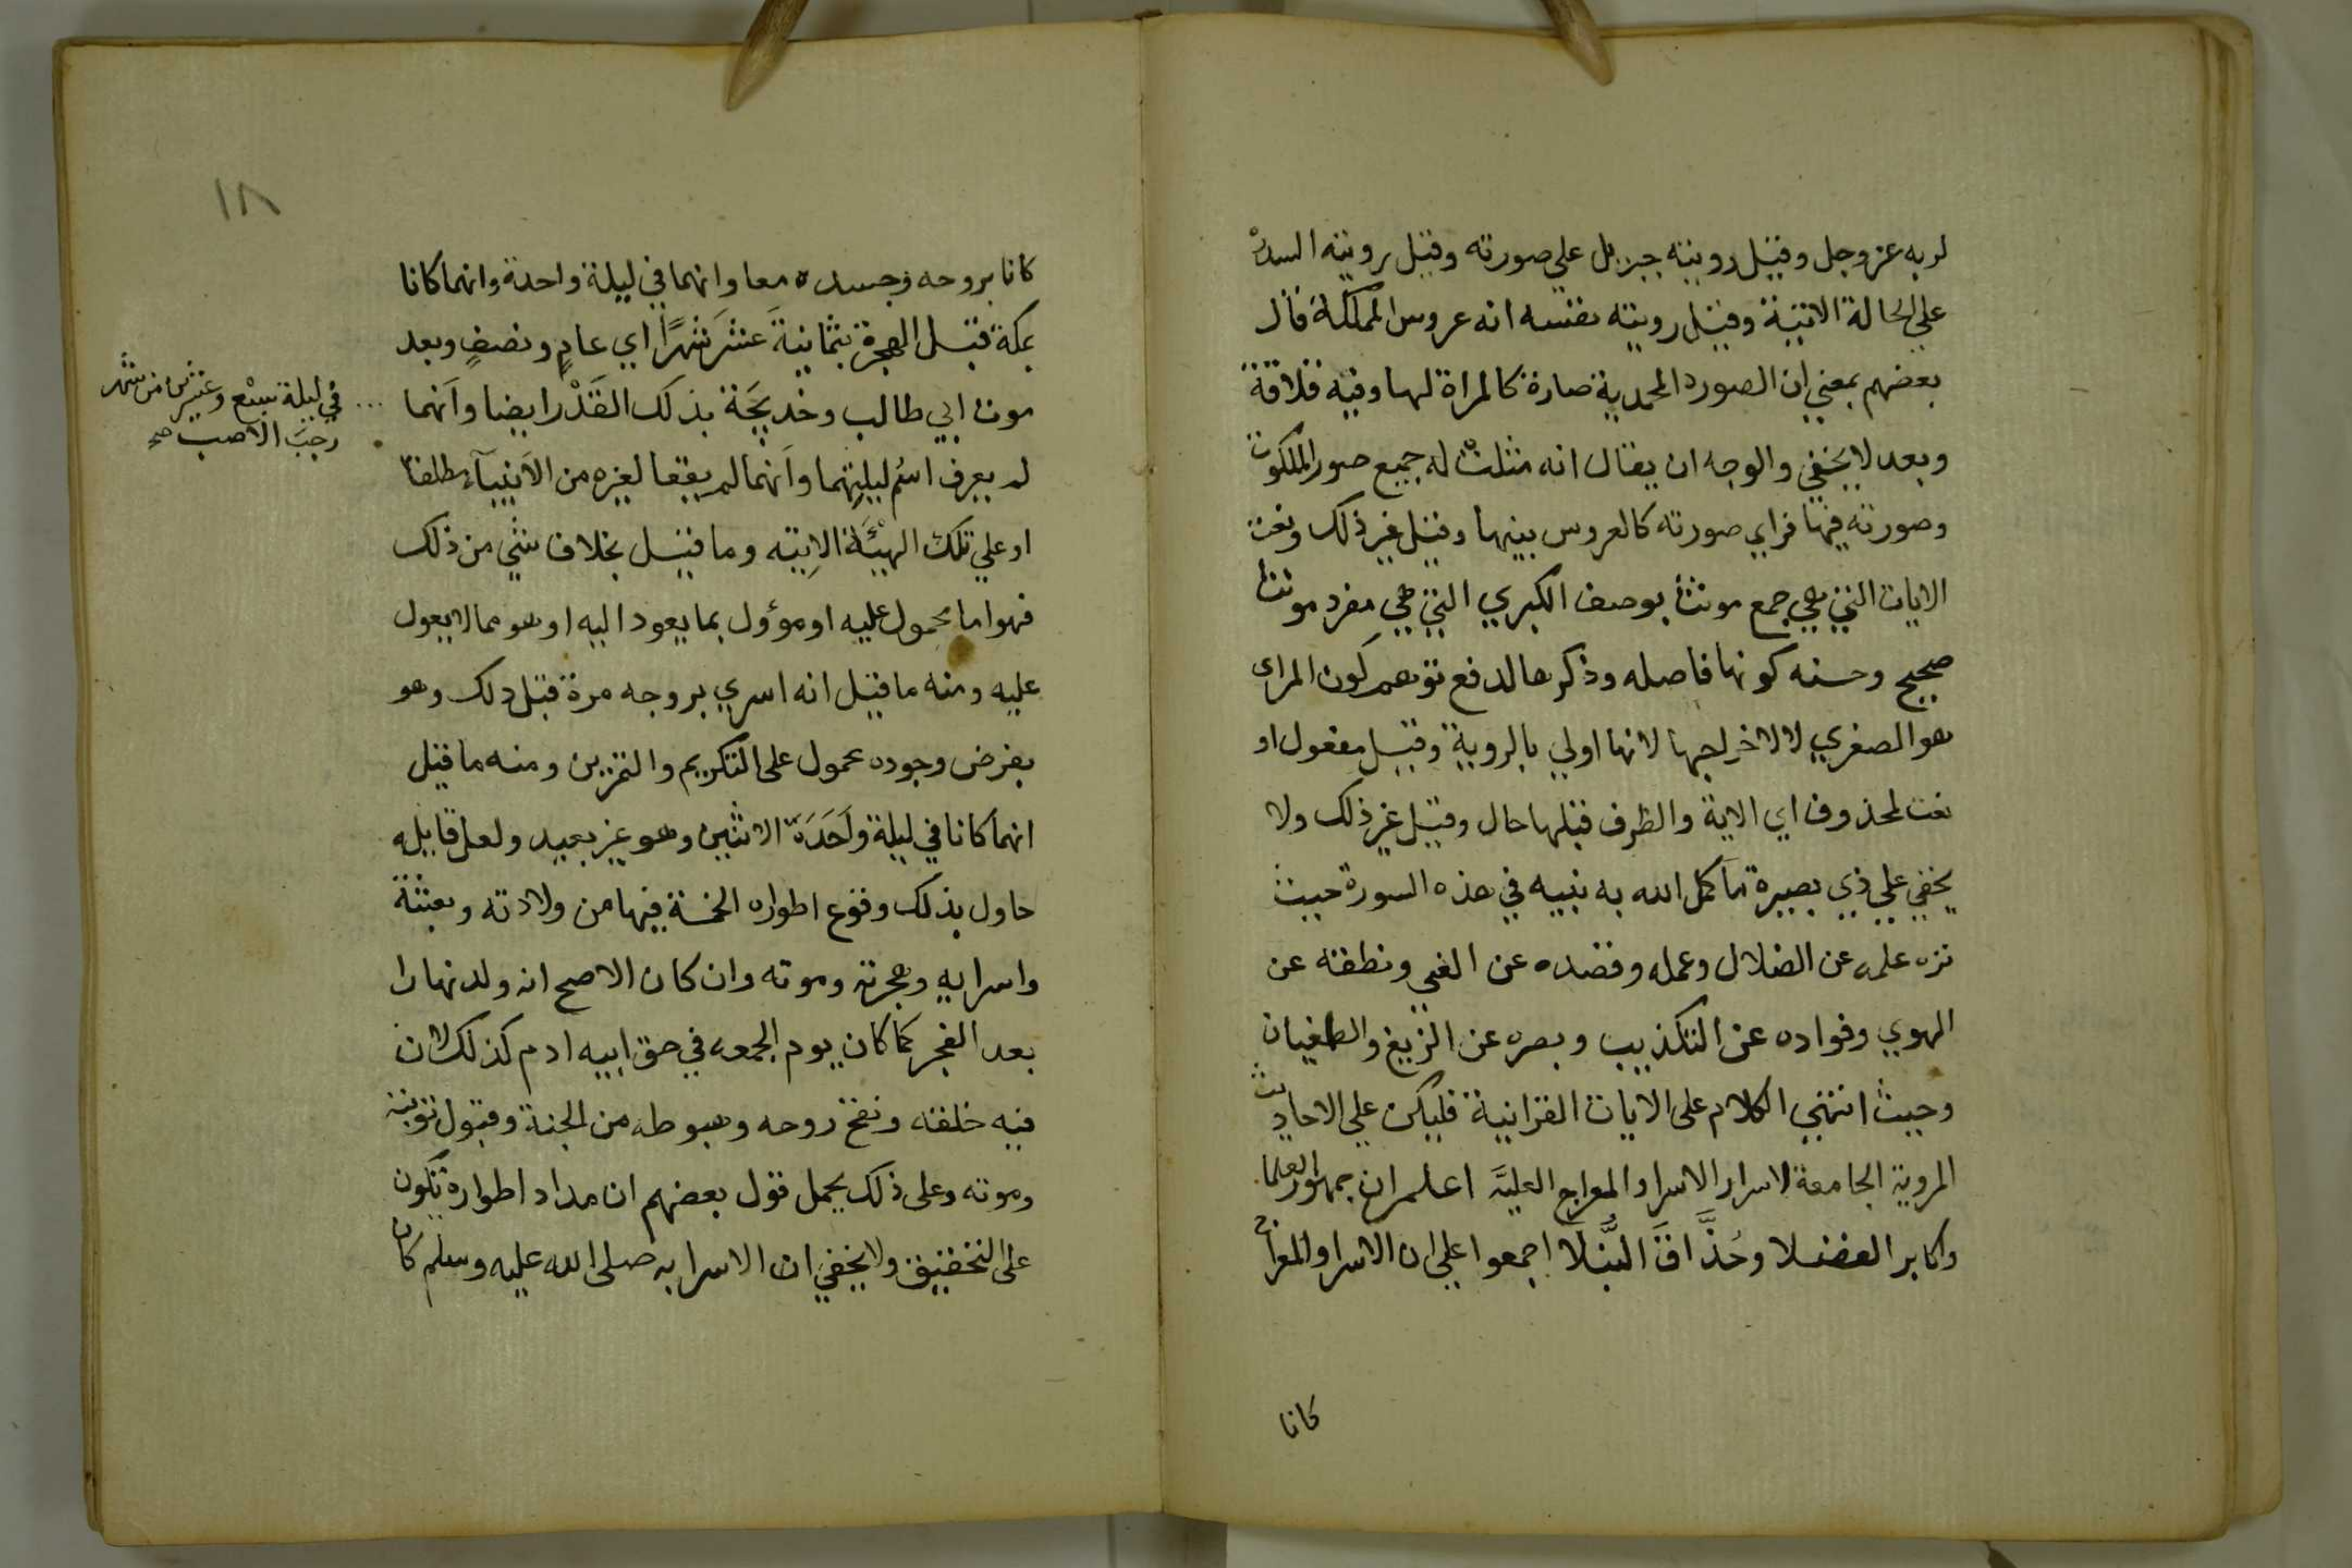 لربه عز وجل وقيل رويته جبريل علي صورته وقيل رويته السدرة
علي الحالة الاتية وقيل رويته نفسه انه عروس المملكة قال
بعضهم بمعني ان الصورة المحمدية صارة كالمراة لها وفيه قلاقة
وبعد لا يخفي والوجه ان يقال انه مثلت له جميع صور الملكوت
وصورته فيها فراي صورته كالعروس بينها وقيل غير ذلك ونعت
الايات التي هي جمع مونث بوصف الكبري التي هي مفرد مونث
صحيح وحسنه كونها فاصله وذكرها لدفع توهم كون المراي
هو الصغري لا لاخراجها لانها اولي بالروية وقيل مفعول او
نعت لمحذوف اي الاية والظرف قبلها حال وقيل غير ذلك ولا
يخفي علي ذي بصيرة ما كمل الله به نبيه في هذه السورة حيث
نزه علمه عن الضلال وعمله وقصده عن الغي ونطقه عن
الهوي وفواده عن التكذيب وبصره عن الزيغ والطغيان
وحيث انتهي الكلام على الايات القرانية فليكن علي الاحاديث
المروية الجامعة لاسرار الاسرا والمعراج العليَّه اعلم ان جمهور العلما
واكابر الفضلا وحُذَّاقَ النُّبَلَا اجمعوا علي ان الاسرا والمعراج
كانا
١٨
كانا بروحه وجسده معا وانهما في ليلة واحدة وانهما كانا
بمكة قبل الهجرة بثمانيةَ عشَرَ شهرًا اي عامٍ ونصفٍ وبعد
موت ابي طالب وخديجَة بذلك القَدْر ايضا وانهما
في ليلة سبْع وعشرين من شهر
رجب الاصب صح
لم يعرف اسْم ليلتِهما وانهما لم يقعا لغيره من الانبيآء مطلقا
او علي تلك الهيْئَة الاتِيته وما قيل بخلاف شي من ذلك
فهو اما محمول عليه او مؤول بما يعود اليه او هو مما لا يعول
عليه ومنه ما قيل انه اسري بروحه مرة قبل ذلك وهو
بفرض وجوده محمول على التكريم والتمرين ومنه ما قيل
انهما كانا في ليلة واَحَدَة الاثنين وهو غير بعيد ولعل قايله
حاول بذلك وقوع اطواره الخمسة فيها من ولادته وبعثته
واسرايه وهجرته وموته وان كان الاصح انه ولد نهارا
بعد الفجر كما كان يوم الجمعه في حق ابيه ادم كذلك لان
فيه خلقه ونفخ روحه وهبوطه من الجنة وقبول توبته
وموته وعلى ذلك يحمل قول بعضهم ان مداد اطواره تكون
على التخفيف ولا يخفي ان الاسرا به صلى الله عليه وسلم كان